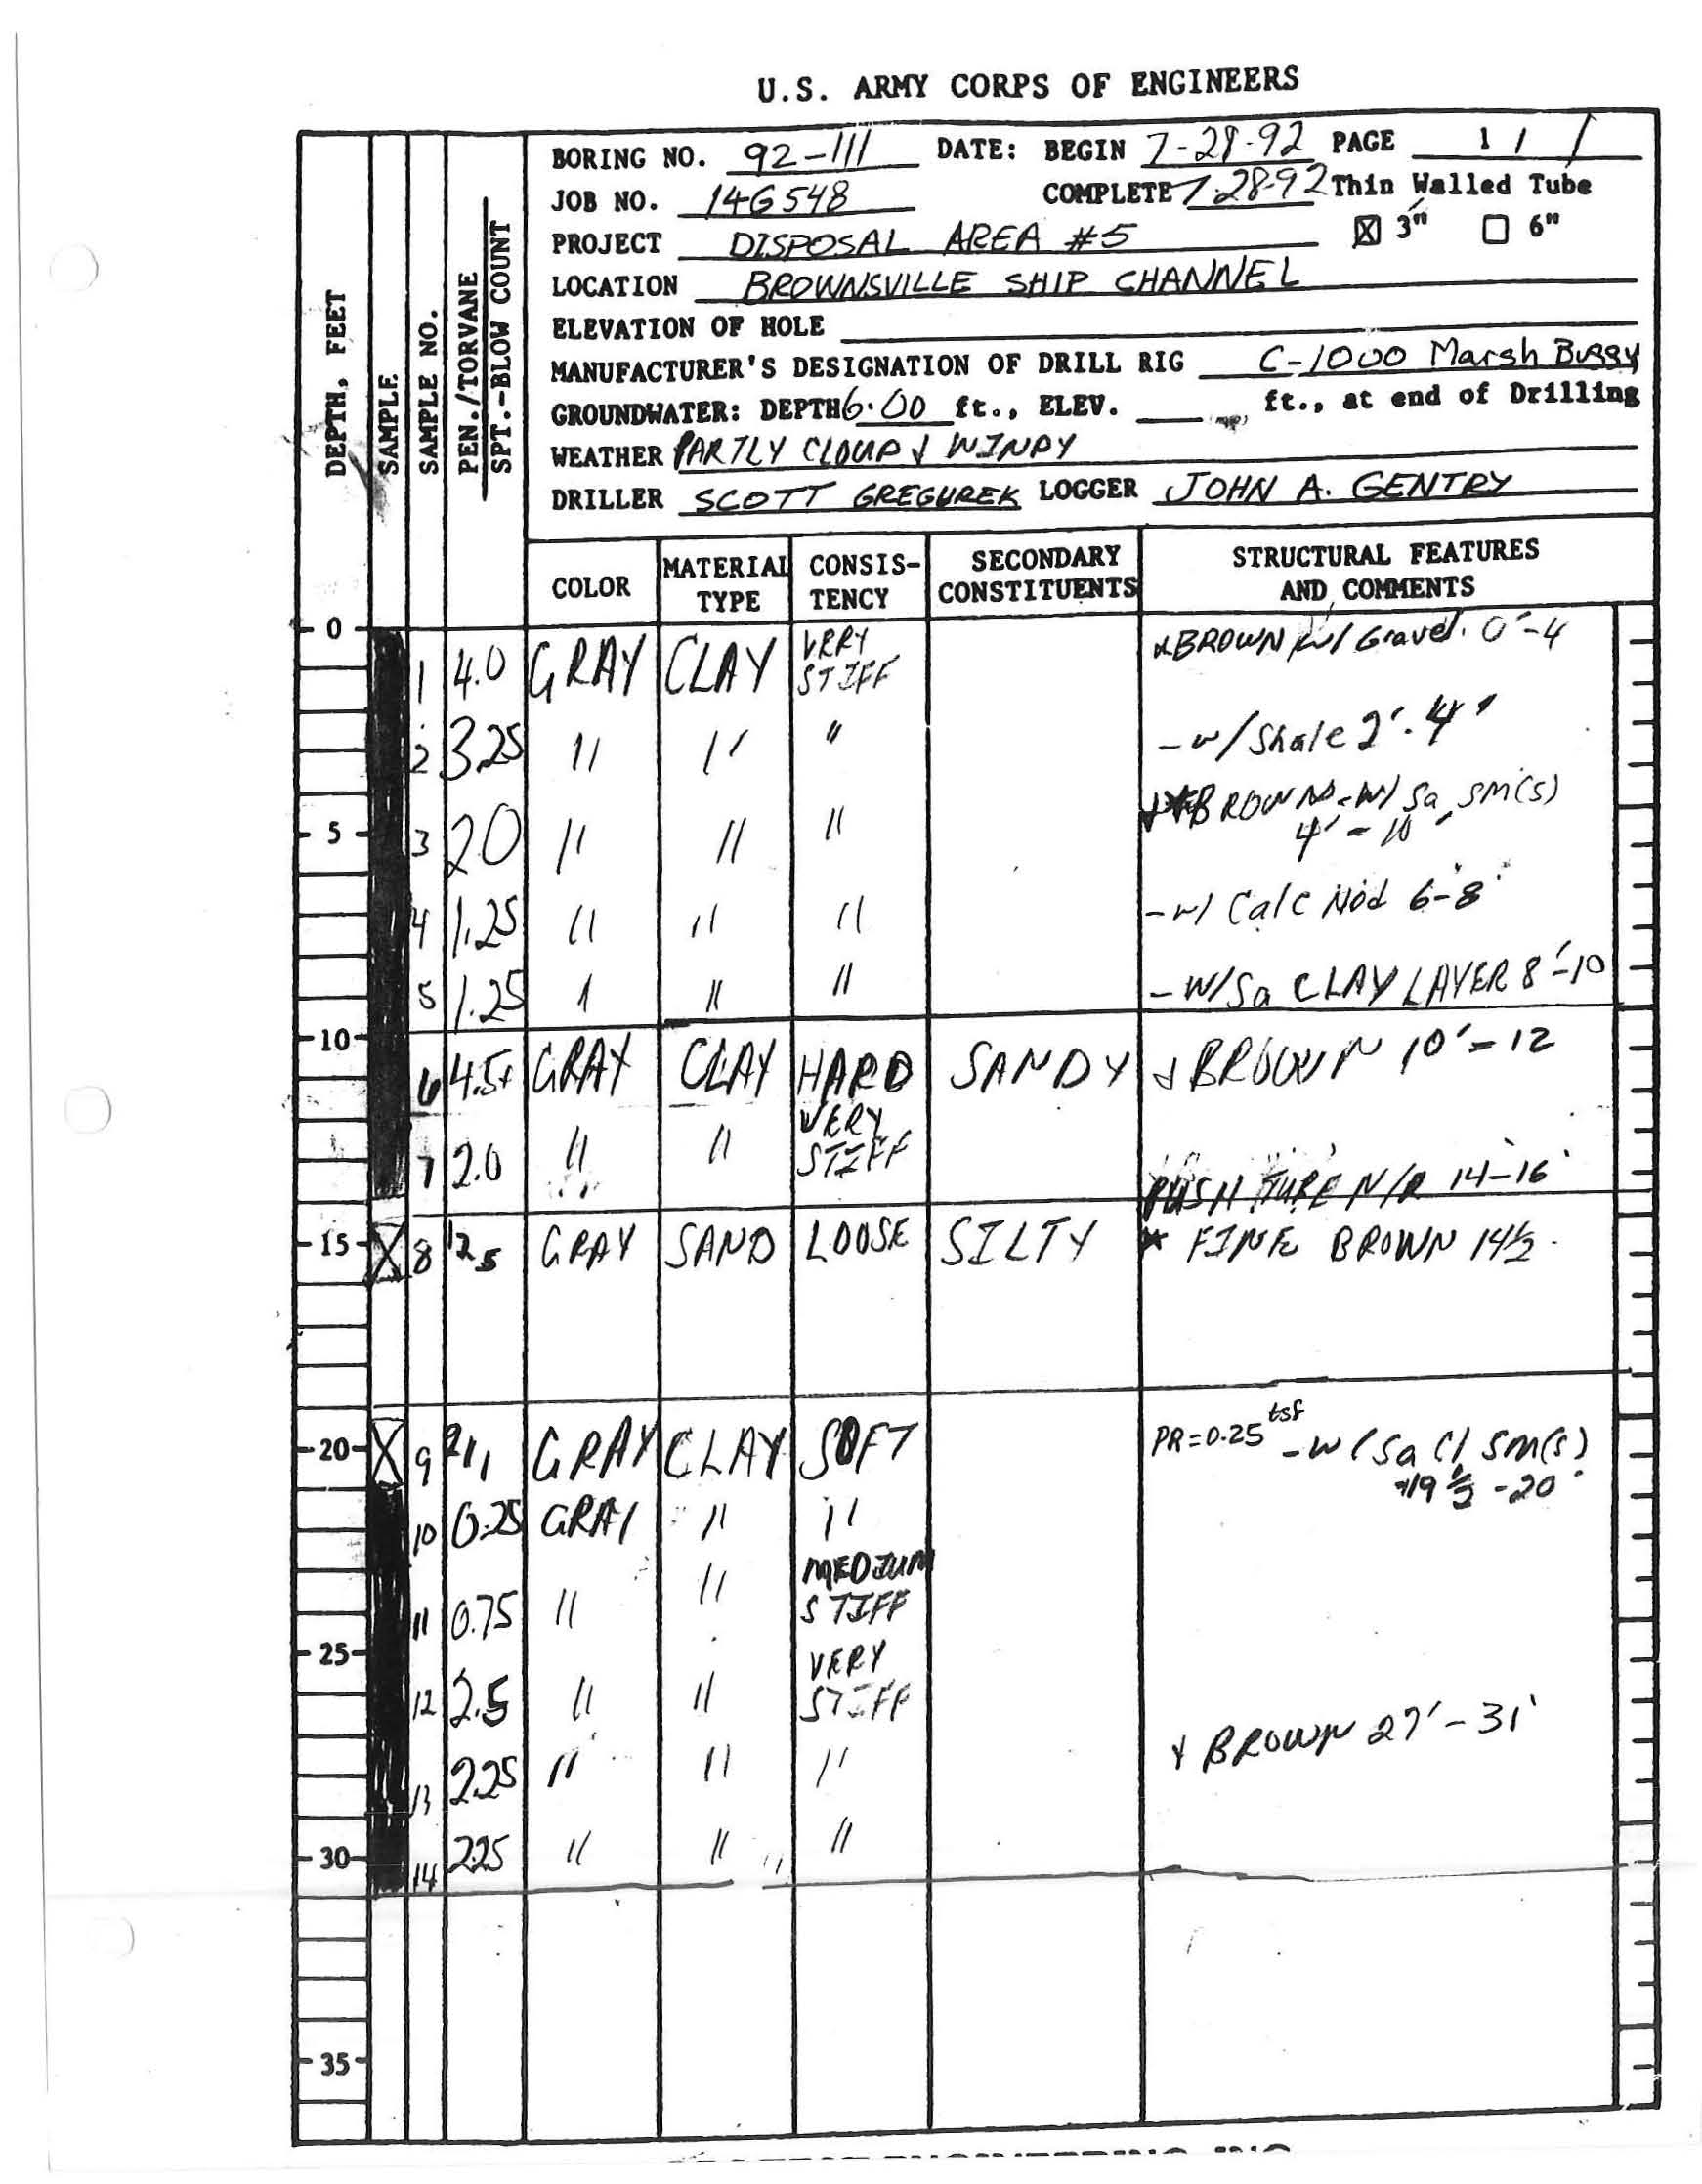 U.S. ARMY CORPS OF ENGINEERS
BORING NO. 92-111 DATE: BEGIN 7-28-92 PAGE 1 / 1
JOB NO. 14G548 COMPLETE 7-28-92 Thin Walled Tube
PROJECT DISPOSAL AREA #5 ☒ 3" ☐ 6"
LOCATION BROWNSVILLE SHIP CHANNEL
ELEVATION OF HOLE
MANUFACTURER'S DESIGNATION OF DRILL RIG C-1000 Marsh Buggy
GROUNDWATER: DEPTH 6.00 ft., ELEV. ft., at end of Drilling
WEATHER PARTLY CLOUDY WINDY
DRILLER SCOTT GREGUREK LOGGER JOHN A. GENTRY
DEPTH, FEET
SAMPLE
SAMPLE NO.
PEN./TORVANE
SPT.-BLOW COUNT
COLOR MATERIAL TYPE CONSIS-TENCY SECONDARY CONSTITUENTS STRUCTURAL FEATURES AND COMMENTS
0
1 4.0 GRAY CLAY VERY STIFF & BROWN w/ Gravel. 0'-4
2 3.25 " " " - w/ Shale 2'-4'
5
3 2.0 " " " BROWN - w/ Sa SM(S) 4'-10'
4 1.25 " " " - w/ Calc Nod 6-8'
5 1.25 " " " - W/Sa CLAY LAYER 8'-10
10
6 4.5+ GRAY CLAY HARD SANDY & BROWN 10'-12
7 2.0 " " VERY STIFF
PUSH TUBE N/R 14-16'
15 8 1 2 5 GRAY SAND LOOSE SILTY * FINE BROWN 14½
20 9 2/1/1 GRAY CLAY SOFT PR=0.25 tsf - w/ Sa Cl SM(S) 19½-20'
10 0.25 GRAY " "
11 0.75 " " MEDIUM STIFF
25
12 2.5 " " VERY STIFF
13 2.25 " " " & BROWN 27'-31'
30
14 2.25 " " "
35